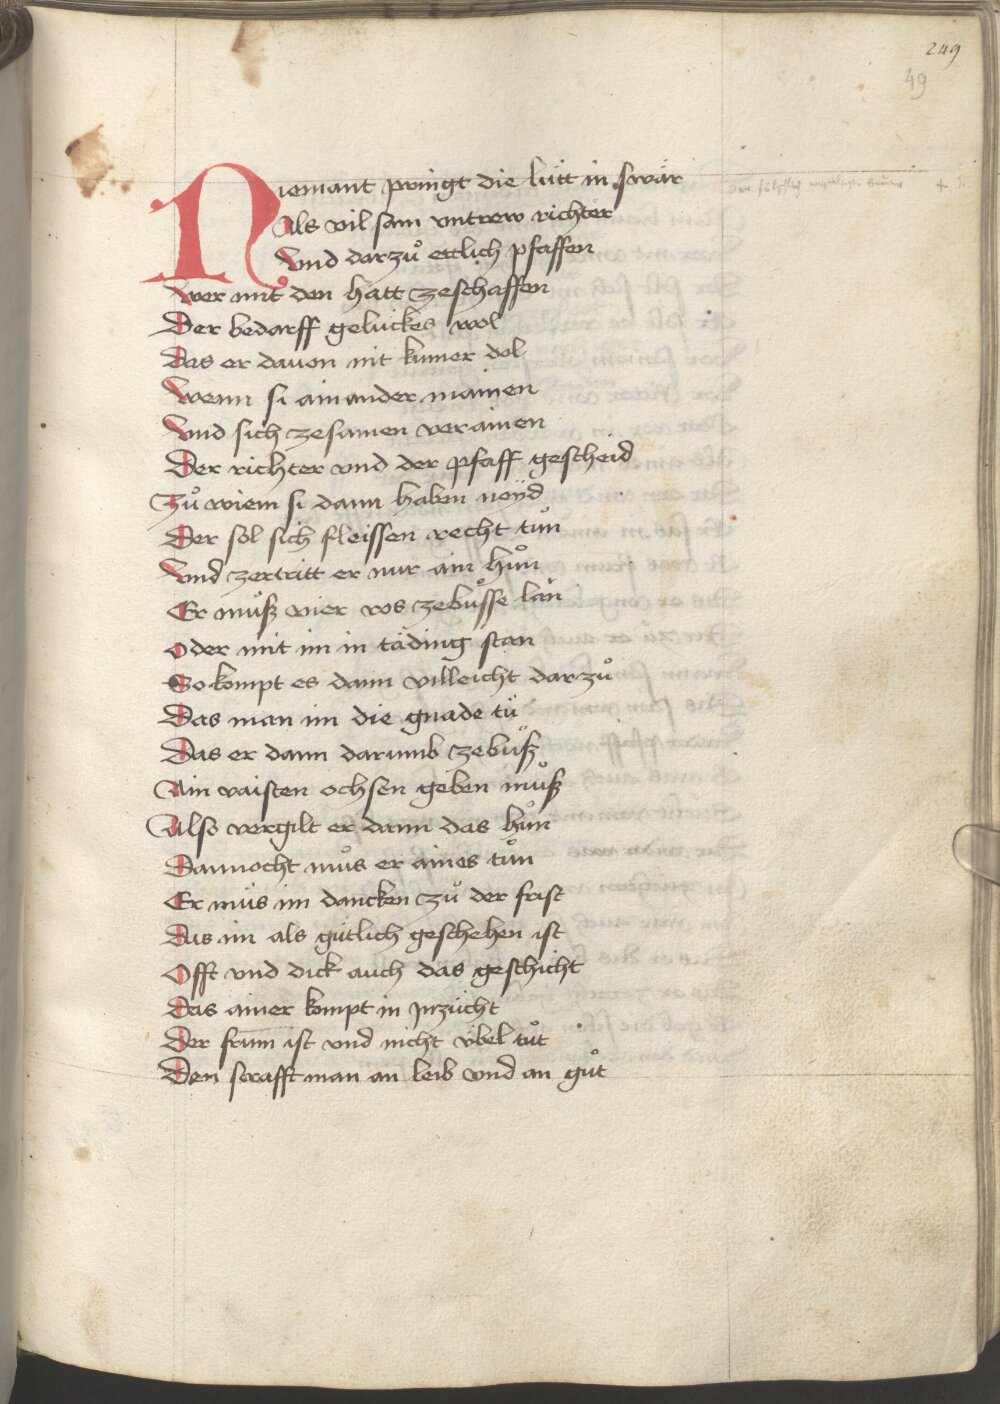 249
49
Niemant pringt die lütt in swär
Als vil sam vntrew richter
Vnd darzuͦ ettlich pfaffen
Wer mit den hatt zeschaffen
Der bedarff gelückes wol
Das er dauon nit kumer dol
Wenn si ain ander mainen
Vnd sich zesamen verainen
Der richter vnd der pfaff gescheid
Zuͦ wiem si dann haben neyd
Der sol sich fleissen recht tuͦn
Vnd zertritt er nur ain huͦn
Er muͦß vier ros zebuͦsse lan
Oder mit im in täding stan
So kompt es dann villeicht darzuͦ
Das man im die gnade tuͦ
Das er dann darumb zebuͦß
Ain vaisten ochsen geben muͦß
Also vergilt er dann das huͦn
Dannocht muͦs er aines tuͦn
Er müs im dancken zuͦ der frist
Das im als gütlich geschehen ist
Offt vnd dick auch das geschicht
Das ainer kompt in Inzücht
Der frum̄ ist vnd nicht vbel tuͦt
Den strafft man an leib vnd an guͦt